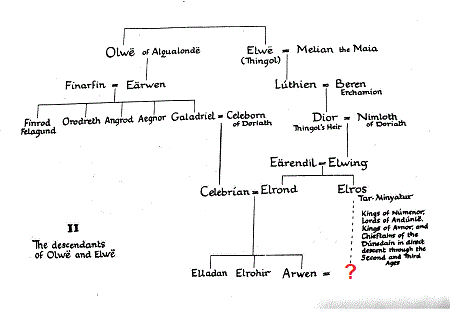 Olwë of Alqualondë
Elwë = Melian the Maia
(Thingol)
Finarfin = Eärwen
Lúthien = Beren
Erchamion
Finrod
Felagund
Orodreth Angrod Aegnor Galadriel = Celeborn
of Doriath
Dior = Nimloth
Thingol's Heir
of Doriath
Eärendil = Elwing
Celebrían = Elrond
Elros
Tar-Minyatur
Kings of Númenor,
Lords of Andúnië,
Kings of Arnor, and
Chieftains of the
Dúnedain in direct
descent through the
Second and Third
Ages
II
The descendants
of Olwë and Elwë
Elladan Elrohir Arwen = ?